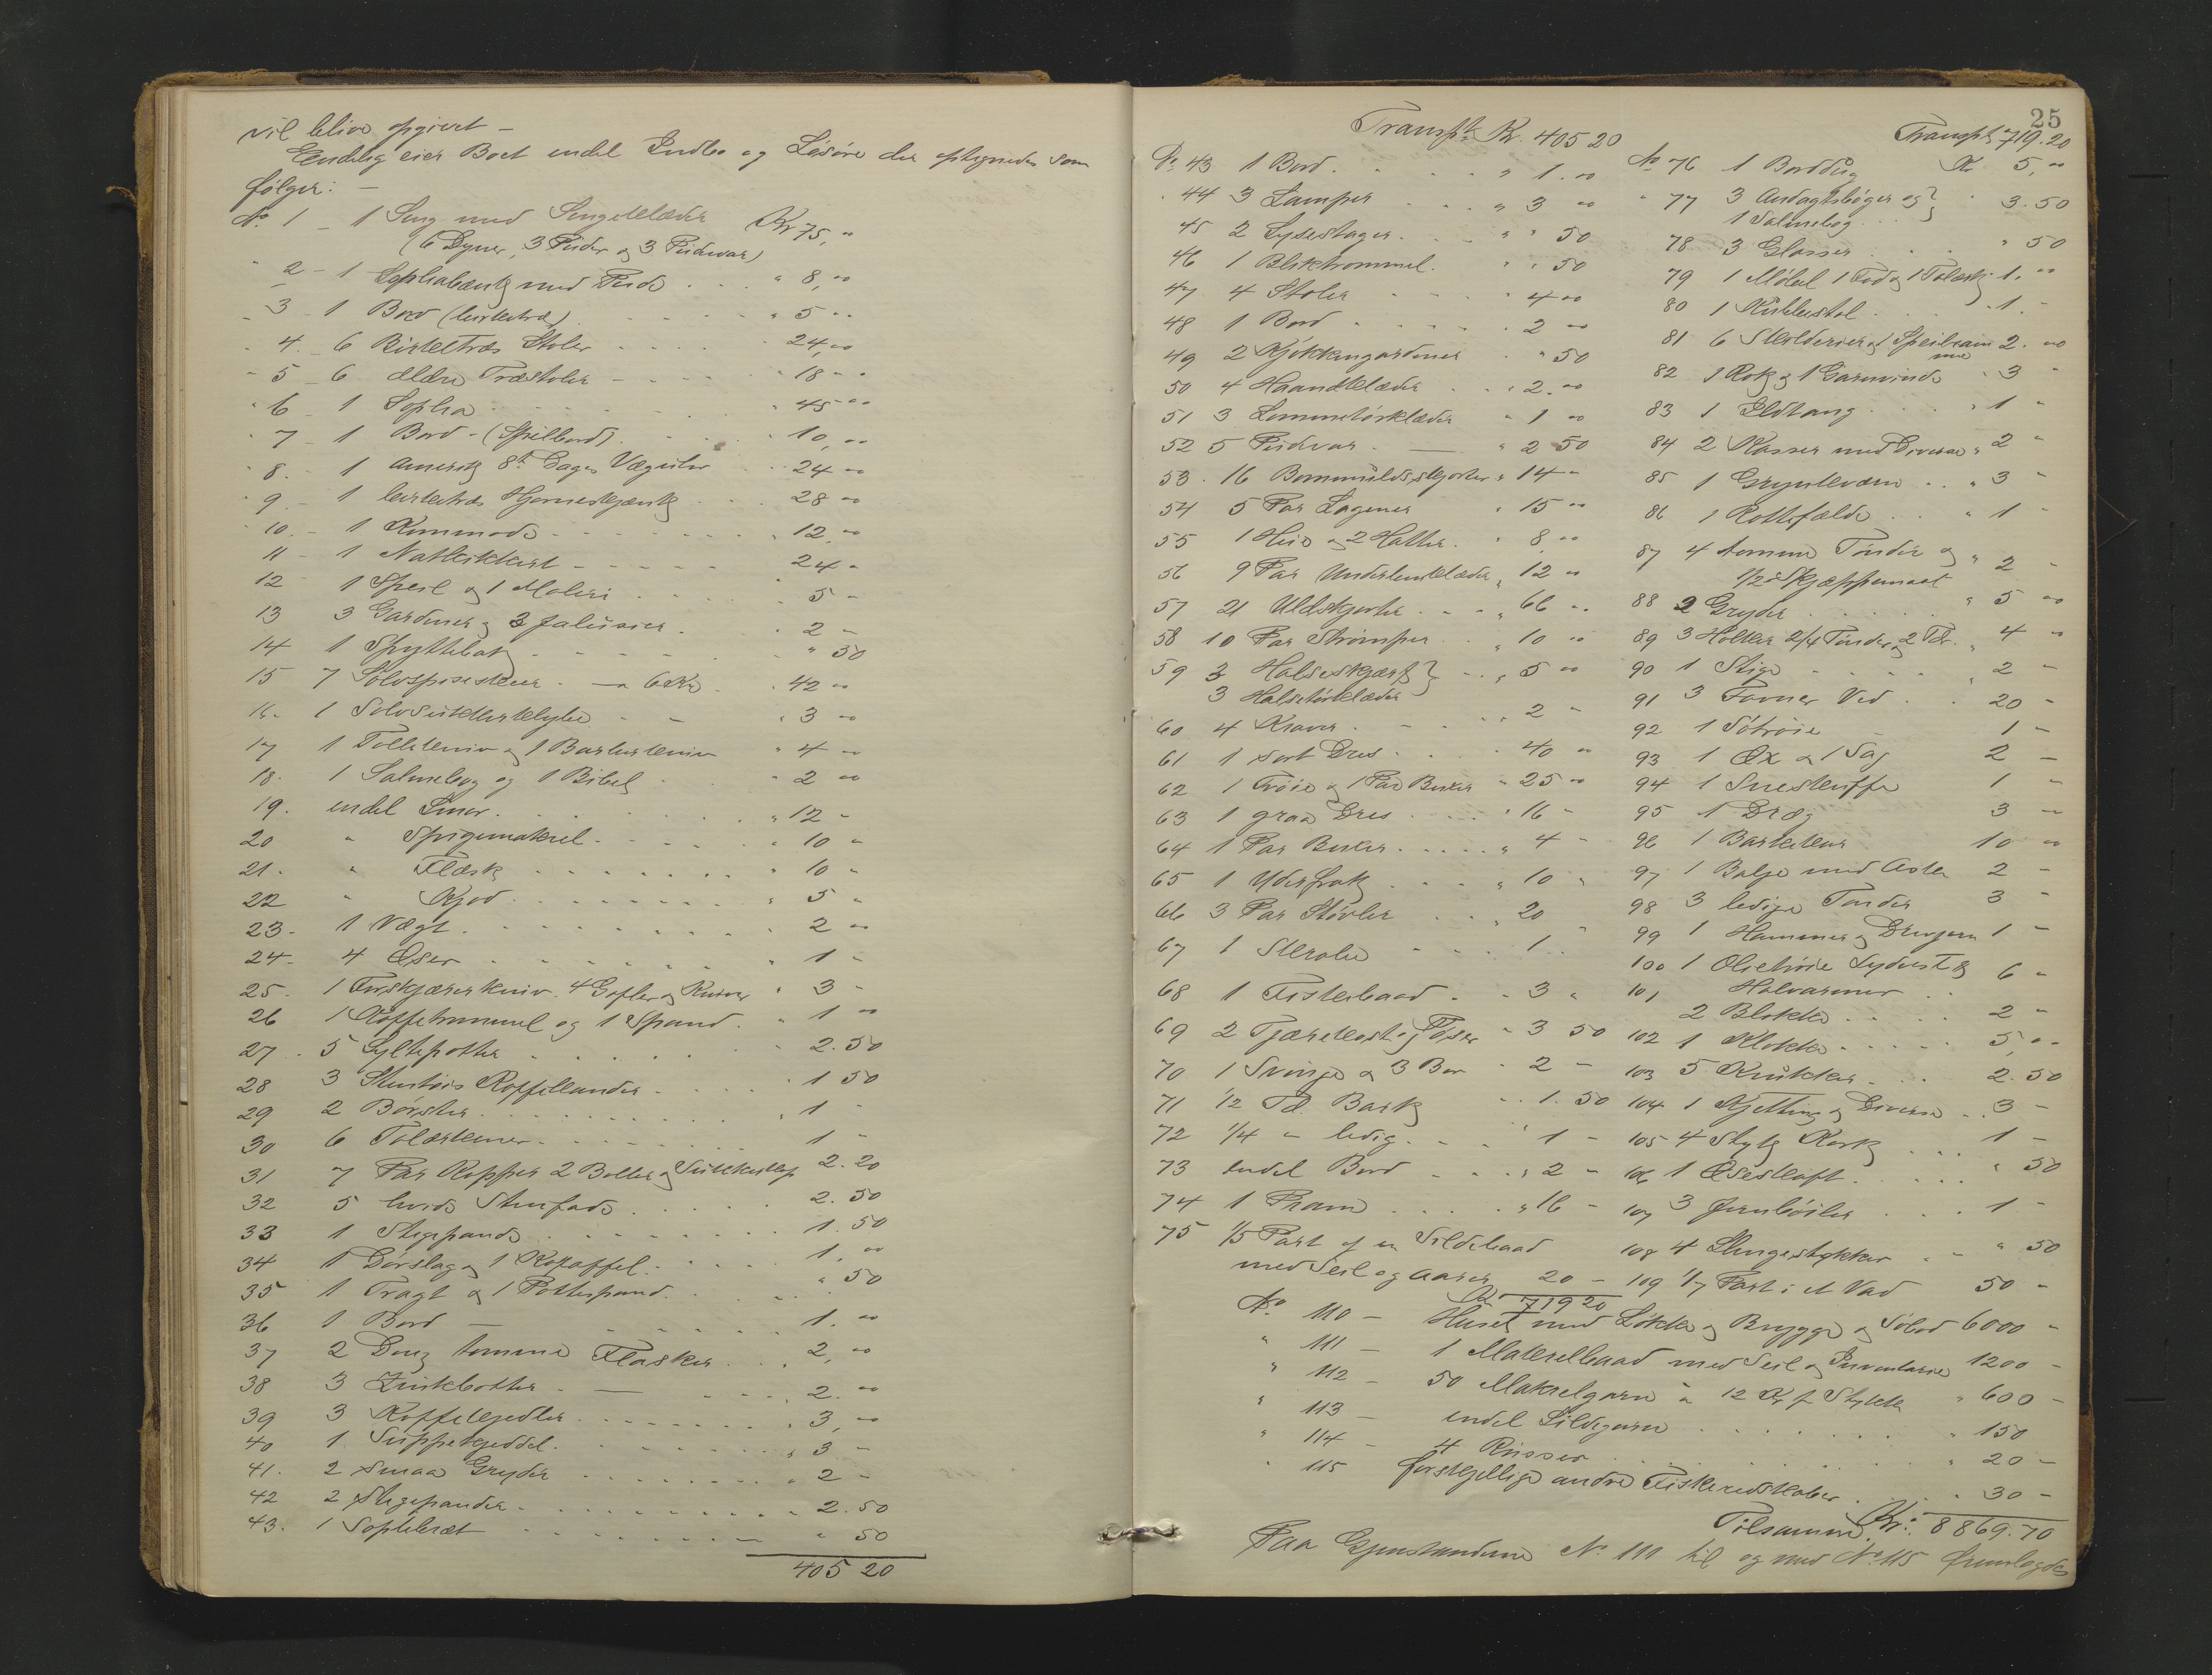 vil blive opgivet –
Endelig eier Boet endel Indbo og Løsøre der optegnedes som
følger: –
No 1 – 1 Seng med Sengeklæder Kr 75,"
(6 Dyner, 3 Puder og 3 Pudevar)
" 2 – 1 Sophabænk med Pude . . . " 8,00
" 3 – 1 Bord (birketræ) . . . " 5 "
" 4 – 6 Birketræs Stoler . . . " 24,00
" 5 – 6 ældre Træstoler – . . . " 18 –
" 6 – 1 Sopha . . . " 45 00
" 7 – 1 Bord – (Spilbord) . . . " 10,00
" 8. – 1 Amerik 8te Dages Væguhr . . 24 00
" 9. – 1 birketræs Hjørneskjænk . . 28 00
" 10. – 1 Kommode . . . " 12,00
11 – 1 Natlikkert – . . . 24 "
12 1 Speil og 1 Maleri . . . 5 –
13 3 Gardiner og 3 Jalusier . . 2 –
14 1 Spyttebak . . . " 50
15 7 Sølvspiseskeer – a 6 Kr. . 42 00
16. 1 Sølvsukkerklype – – " 3 00
17 1 Tollekniv og 1 Barberkniv " 4 00
18. 1 Salmebog og 1 Bibel . " 2 00
19. endel Liner . . . " 12 –
20 " Spigemakrel . . . " 10 "
21. " Flæsk . . . " 10 "
22 " Kjød . . . " 5 "
23. 1 Vægt . . . 2 00
24. 4 Øser . . . " 1 –
25. 1 Forskjærerkniv. 4 Gafler og Kniver " 3 –
26 1 Kaffetrommel og 1 Spand . " 1 00
27 . 5 Sylteporter . . . 2.50
28 3 Stentøis Kaffekander . . . 1 50
29 2 Børster . . . " 1 –
30 6 Talærkener . . . 1 –
31 7 Par Kopper 2 Boller og Sukkerkop 2.20
32 5 hvide Stenfade . . . 2.50
33 1 Stegepande . . . 1.50
34 1 Dørslag og 1 . . . 1,00
35 1 Tragt og 1 Pottespand . . . " 50
36 1 Bord – . . . 1.00
37 2 Douz tomme Flasker . . . 2,00
38 3 Zinkbøtter . – . . . 2.00
39 3 Kaffekjedler . . . " 3,00
40 1 Suppekjeddel . . . " 3 –
41. 2 smaa Gryder . . . " 2 –
42 2 Stegepander . . . 2.50
43. 1 Sopebræt . . . " 50
405 20
25
Transpt Kr. 405 20
No 43 1 Bord . . . " 1.00
" 44 3 Lamper . . . " 3 00
45 2 Lysestager . . . " " 50
46 1 Bliktrommel . " " 50
47 4 Stoler . . . " 4 00
48 1 Bord . . . " 2 00
49 2 Kjøkkengardiner . " 50
50 4 Haandklæder . . " 2.00
51 3 Lommetørklæder " 1 00
52 5 Pudevar . – " 2 50
53 . 16 Bommuldsskjorter " 14 –
54 5 Par Lagener " 15 00
55 1 Hue og 2 Hatter . " 8,00
56 9 Par Underbenklæder " 12 00
57 21 Uldskjorter . . " 66 "
58 10 Par Strømper . . " 10 00
59 3 Halseskjærf } . . " 5 00
3 Halstørklæder
60 4 Kraver . – . . " 2 –
61 1 sort Dres . . . 40 00
62 1 Trøie og 1 Par Buxer " 25 00
63 1 graa Dres . . . " 16 –
64 1 Par Buxer . . . " 4 –
65 1 Yderfrak . . . " 10 "
66 3 Par Støvler . . " 20
67 1 Skrabe . . . 1 "
68 1 Fiskebaad . . 3 "
69 2 Tjærekost og Føser " 3 50
70 1 Svinge og 3 Bor " 2 –
71 1/2 Td. Bark " 1.50
72 1/4 " ledig . . . " 1 –
73 Endel Bord . . . " 2 –
74 1 Pram . . . " 16 –
75 1/5 Part af en Sildebaad
med Seil og Aarer 20 –
Kr 719 20
Transpt 719.20
No 76 1 Borddug Kr 5,00
" 77 3 Andagtsbøger og } " 3.50
1 Salmebog . .
78 3 Glasser . . . " 50
79 1 Møbel 1 Fad og 1 Talærk 1.00
80 1 Krakkestol . . . 1.–
81 6 Skilderier og 1 Speilram 2.00
me
82 1 Rok og 1 Garnvinde " 3 –
83 1 Ildtang . . . " 1 "
84 2 Kasser med Diverse " 2 –
85 1 Grynkværn . . " 3 –
86 1 Rottefælde . . " 1 –
87 4 tomme Tønder og " 2 –
1/2 Skjæppemaal
88 2 Gryder . . . " 5 00
89 3 Holker 2/4 Tønder og 2 Td. " 4 00
90 1 Stige . . . " 2 –
91 3 Favner Ved . . 20 –
92 1 Søtrøie – 1 –
93 1 Øx og 1 Sag 2 –
94 1 Sneskuffe 1 "
95 1 Dræg 3 –
96 1 Barkekar 10 00
97 1 Balje med Aske 2 –
98 3 ledige Tønder 3 –
99 1 Hammer og Drivjern 1 –
100 1 Olietrøie Sydvest og 6 –
101 Halvarmer . .
2 Blokke . . . 2 –
102 1 Klokke . . . 5,00
103 5 Krukker . . . 2.50
104 1 Kjetting og Diverse . . 3 –
105 4 Styk Kork . . . 1 –
106 1 Øseskaft . . . " 50
107 3 Jernbøiler . . . 1 –
108 4 Slingestykker . . " 50
109 1/7 Part i et Vad 50 –
No 110 – Huset med Løkke og Brygge og Søbod 6000 –
" 111 – 1 Makrelbaad med Seil og Inventarie 1200 –
" 112 – 50 Makrelgarn a 12 Kr pr Stykke " 600 –
" 113 – endel Sildegarn . . . " 150
" 114 – 4 Ruser . . . " 20 –
" 115 forskjellige andre Fiskeredskaber . . . 30 –
Tilsammen Kr: 8869.70
Paa Gjenstandene No 111 til og med No 115 fremlagdes